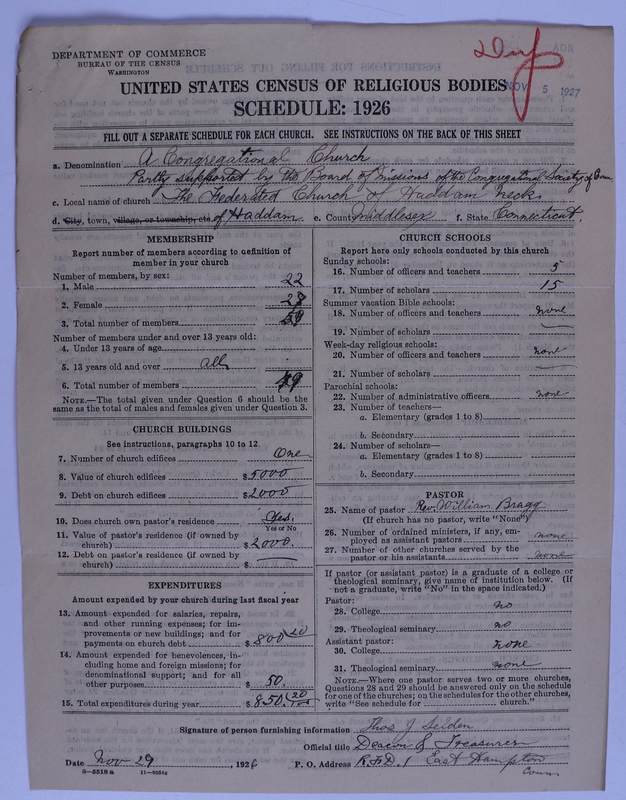 DEPARTMENT OF COMMERCE
BUREAU OF THE CENSUS
WASHINGTON
UNITED STATES CENSUS OF RELIGIOUS BODIES
NOV 5 1927
SCHEDULE: 1926
FILL OUT A SEPARATE SCHEDULE FOR EACH CHURCH. SEE INSTRUCTIONS ON THE BACK OF THIS SHEET
a. Denomination A Congregational Church
Partly supported by the Board of Missions of the Congregational Society of Conn
c. Local name of church The Federated Church of Haddam Neck.
d. City, town, village, or township, etc of Haddam. e. County Middlesex f. State Connecticut.
MEMBERSHIP
Report number of members according to definition of
member in your church
Number of members, by sex:
1. Male 22
2. Female
3. Total number of members
Number of members under and over 13 years old:
4. Under 13 years of age
5. 13 years old and over all
6. Total number of members
NOTE.—The total given under Question 6 should be
same as the total of males and females given under Question 3.
CHURCH BUILDINGS
See instructions, paragraphs 10 to 12
7. Number of church edifices One
8. Value of church edifices $5000
9. Debt on church edifices $2000
10. Does church own pastor's residence Yes.
Yes or No
11. Value of pastor's residence (if owned by
church) $2000.
12. Debt on pastor's residence (if owned by
church) $ —
EXPENDITURES
Amount expended by your church during last fiscal year
13. Amount expended for salaries, repairs,
and other running expenses; for im-
provements or new buildings; and for
payments on church debt $800 20
14. Amount expended for benevolences, in-
cluding home and foreign missions; for
denominational support; and for all
other purposes $50.
15. Total expenditures during year $850. 20
CHURCH SCHOOLS
Report here only schools conducted by this church
Sunday schools:
16. Number of officers and teachers 5
17. Number of scholars 15
Summer vacation Bible schools:
18. Number of officers and teachers none
19. Number of scholars —
Week-day religious schools:
20. Number of officers and teachers none
21. Number of scholars —
Parochial schools:
22. Number of administrative officers none
23. Number of teachers—
a. Elementary (grades 1 to 8)
b. Secondary
24. Number of scholars—
a. Elementary (grades 1 to 8)
b. Secondary
PASTOR
25. Name of pastor Rev. William Bragg
(If church has no pastor, write "None")
26. Number of ordained ministers, if any, em-
ployed as assistant pastors none
27. Number of other churches served by the
pastor or his assistants none
If pastor (or assistant pastor) is a graduate of a college or
theological seminary, give name of institution below. (If
not a graduate, write "No" in the space indicated.)
Pastor:
28. College no
29. Theological seminary no
Assistant pastor:
30. College none
31. Theological seminary none
NOTE.—Where one pastor serves two or more churches,
Questions 28 and 29 should be answered only on the schedule
for one of the churches; on the schedules for the other churches,
write "See schedule for church."
Signature of person furnishing information Thos J Selden
Official title Deacon & Treasurer
Date Nov 29, 1926 P. O. Address R.F.D. 1 East Hampton
Conn
8—5518a 11—9554